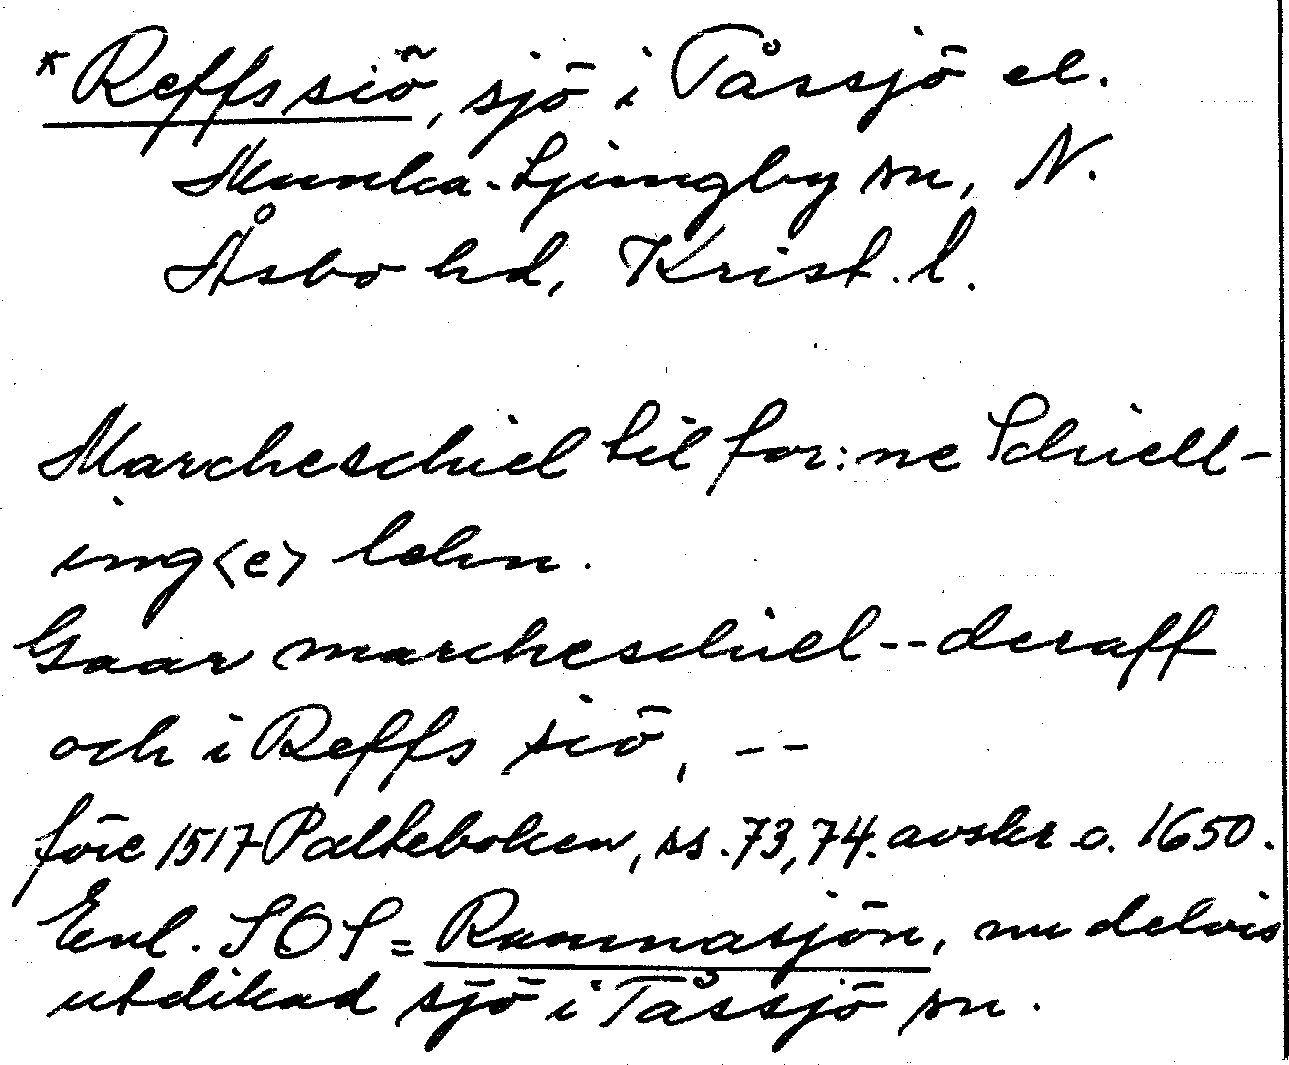 *Reffs siö, sjö i Tåssjö el.
Munka-Ljungby sn, N.
Åsbo hd, Krist. l.
Marcheschiel til for:ne Schiell-
ing<e> lehn.
Gaar marcheschiel -- deraff
och i Reffs siö, --
före 1517 Palteboken, ss. 73, 74. avskr o. 1650.
Enl. SOS = , nu delvis
utdikad sjö i Tåssjö sn.